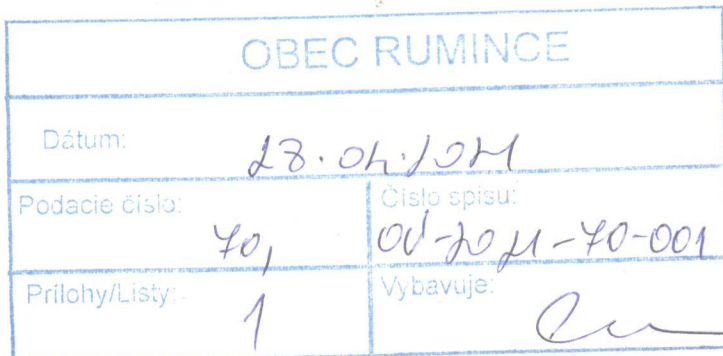 OBEC RUMINCE
Dátum: 28.04.2021
Podacie číslo: 70,
Číslo spisu: OU-2021-70-001
Prílohy/Listy: 1
Vybavuje: